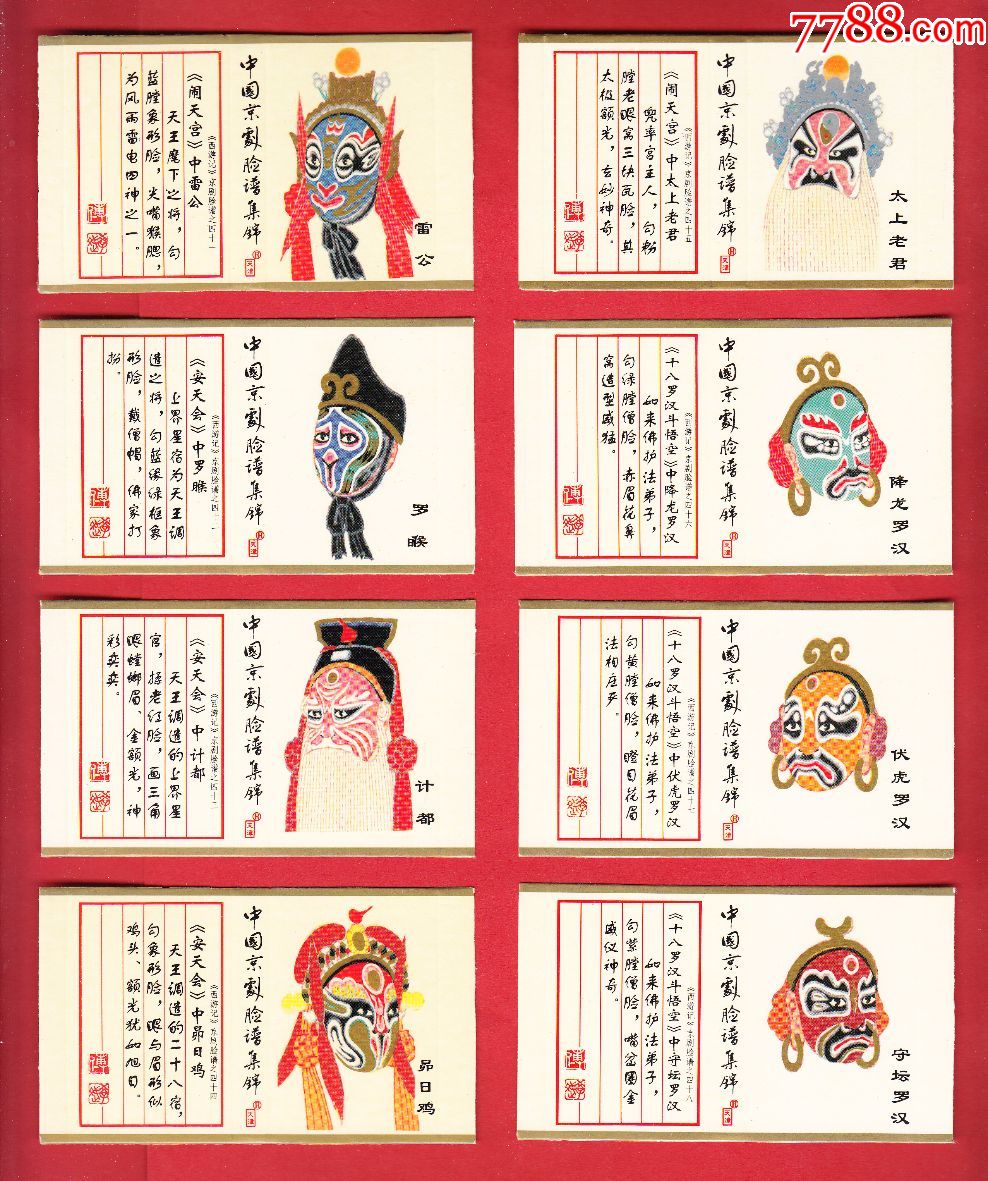 7788.com
中國京劇臉譜集錦
天津
《西游记》京剧脸谱之四十一
《闹天宫》中雷公
天王麾下之将，勾
蓝膛象形脸，尖嘴猴腮，
为风雨雷电四神之一。
雷公
中國京劇臉譜集錦
天津
《西游记》京剧脸谱之四十五
《闹天宫》中太上老君
兜率宫主人，勾粉
膛老眼窝三块瓦脸，其
太极额光，玄妙神奇。
太上老君
中國京劇臉譜集錦
天津
《西游记》京剧脸谱之四十二
《安天会》中罗睺
上界星宿为天王调
遣之将，勾蓝缘绿框象
形脸，戴僧帽，佛家打
扮。
罗睺
中國京劇臉譜集錦
天津
《西游记》京剧脸谱之四十六
《十八罗汉斗悟空》中降龙罗汉
如来佛护法弟子，
勾绿膛僧脸，赤眉花鼻
窝造型威猛。
降龙罗汉
中國京劇臉譜集錦
天津
《西游记》京剧脸谱之四十三
《安天会》中计都
天王调遣的上界星
官，揉老红脸，画三角
眼螳螂眉、金额光，神
彩奕奕。
计都
中國京劇臉譜集錦
天津
《西游记》京剧脸谱之四十七
《十八罗汉斗悟空》中伏虎罗汉
如来佛护法弟子，
勾黄膛僧脸，瞪目花眉
法相庄严。
伏虎罗汉
中國京劇臉譜集錦
天津
《西游记》京剧脸谱之四十四
《安天会》中昴日鸡
天王调遣的二十八宿，
勾象形脸，眼与眉形似
鸡头、额光犹如旭日。
昴日鸡
中國京劇臉譜集錦
天津
《西游记》京剧脸谱之四十八
《十八罗汉斗悟空》中守坛罗汉
如来佛护法弟子，
勾紫膛僧脸，嘴岔圈金
威仪神奇。
守坛罗汉